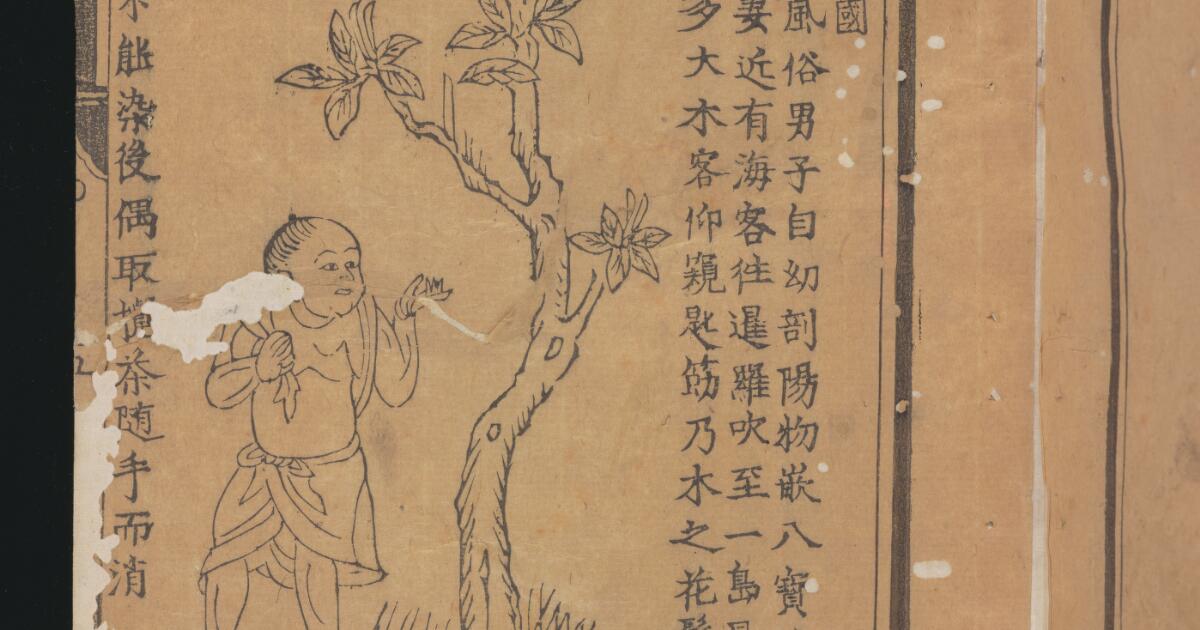 國
風俗男子自幼剖陽物嵌八寶
妻近有海客徃暹羅吹至一島
多大木客仰窺匙筯乃木之花
能染後偶取攢茶随手而消